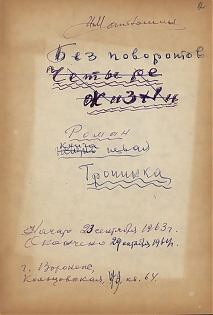 Без поворотов
Четыре
жизни
Роман
Книга первая
Тропинка
Начато 23 сентября 1963 г.
Окончено 29 марта 1964 г.
г. Воронеж,
Кольцовская, кв. 64.